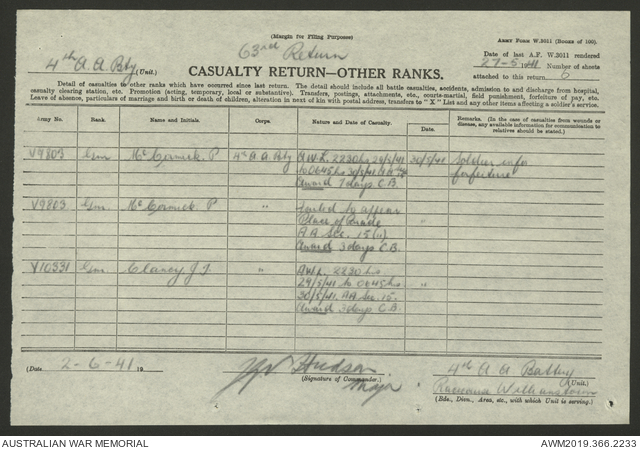 (Margin for Filing Purposes)
ARMY FORM W.3011 (BOOKS OF 100).
63rd Return
Date of last A.F. W.3011 rendered
27-5-1941 Number of sheets
attached to this return 6
4th A.A. Bty (Unit.)
CASUALTY RETURN—OTHER RANKS.
Detail of casualties to other ranks which have occurred since last return. The detail should include all battle casualties, accidents, admission to and discharge from hospital,
casualty clearing station, etc. Promotion (acting, temporary, local or substantive). Transfers, postings, attachments, etc., courts-martial, field punishment, forfeiture of pay, etc.
Leave of absence, particulars of marriage and birth or death of children, alteration in next of kin with postal address, transfers to "X" List and any other items affecting a soldier's service.
Army No. Rank. Name and Initials. Corps. Nature and Date of Casualty. Date. Remarks. (In the case of casualties from wounds or disease, any available information for communication to relatives should be stated.)
V9803 Gnr McCormick. P 4th A.A. Bty A.W.L. 2230 hrs 29/5/41 30/5/41 Soldier
to 0645 hrs 30/5/41 forfeiture
Award 7 days C.B.
V9803 Gnr McCormick P " Failed to appear
Place of Parade "
AA Sec. 15 (11)
Award 3 days C.B.
V10331 Gnr Clancy J.J. " A.W.L. 2230 hrs
29/5/41 to 0645 hrs "
30/5/41. AA Sec. 15.
Award 3 days C.B.
(Date 2-6-41 19
Hudson
(Signature of Commander.)
Major
4th A A Battery
(Unit.)
Racecourse Williamstown
(Bde., Div., Area, etc., with which Unit is serving.)
AUSTRALIAN WAR MEMORIAL
AWM2019.366.2233